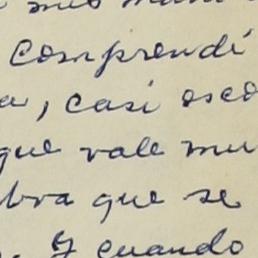 comprendi
a, casi osco
que vale mu
bra que se
. Y cuando